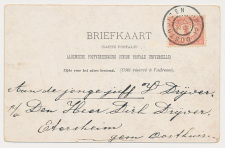 BRIEFKAART
(CARTE POSTALE)
ALGEMEENE POSTVEREENIGING (UNION POSTALE UNIVERSELLE)
Zijde voor het adres bestemd. (Côté réservé à l'adresse.)
Aan de jonge juff L. Drijver.
p/a Den Heer Dirk Drijver.
Etersheim
gem Oosthuizen